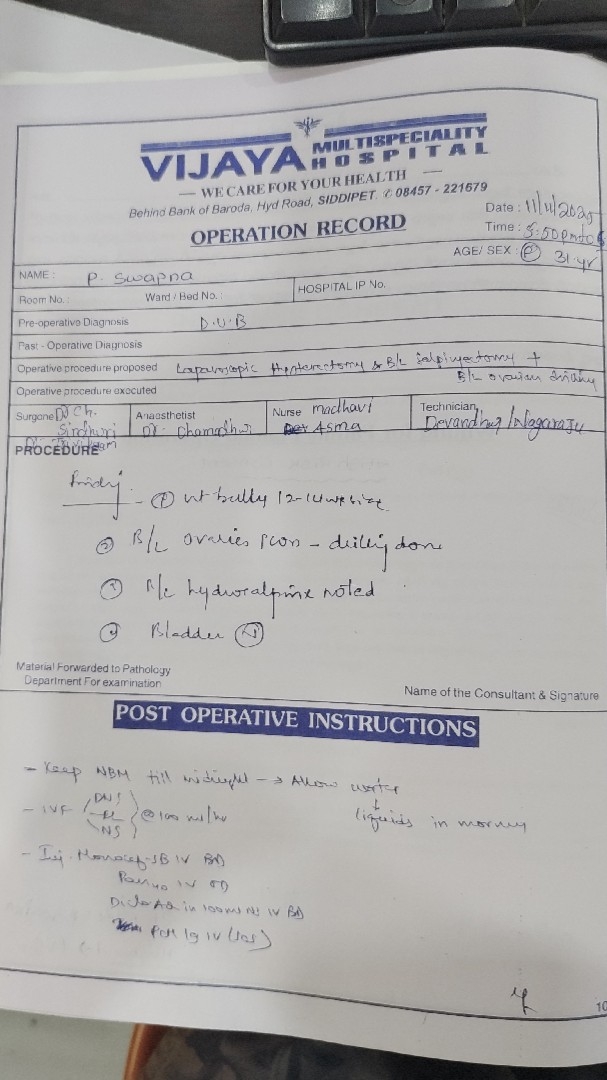 VIJAYA MULTISPECIALITY HOSPITAL
— WE CARE FOR YOUR HEALTH —
Behind Bank of Baroda, Hyd Road, SIDDIPET. ✆ 08457 - 221679
OPERATION RECORD
Date : 11/11/2025
Time : 5:50pm to
AGE/ SEX : F 31 yr
NAME : P. Swapna
Room No. : Ward / Bed No. : HOSPITAL IP No.
Pre-operative Diagnosis D.U.B
Past - Operative Diagnosis
Operative procedure proposed Laparoscopic Hysterectomy & B/L Salpingectomy +
B/L ovarian drilling
Operative procedure executed
Surgone Dr Ch. Sindhuri
Anaesthetist Dr.
Nurse madhavi
Asma
Technician
Nagaraju
PROCEDURE
① ut bulky 12-14 wk size
② B/L ovaries PCOS - drilling done
③ B/L hydrosalpinx noted
④ Bladder Ⓝ
Material Forwarded to Pathology
Department For examination
Name of the Consultant & Signature
POST OPERATIVE INSTRUCTIONS
- Keep NBM till midnight → Allow water
↓
liquids in morning
- IVF DNS RL NS } @ 100 ml/hr
- Inj. Monocef-SB IV BD
IV OD
AQ in 100ml NS IV BD
PCM 1g IV (SOS)
10